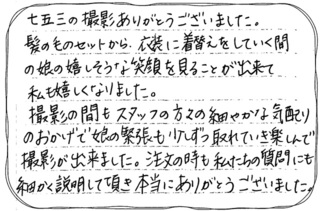 七五三の撮影ありがとうございました。
髪の毛のセットから、衣装に着替えをしていく間
の娘の嬉しそうな笑顔を見ることが出来て
私も嬉しくなりました。
撮影の間もスタッフの方々の細やかな気配り
のおかげで娘の緊張も少しずつ取れていき楽しんで
撮影が出来ました。注文の時も私たちの質問にも
細かく説明して頂き本当にありがとうございました。